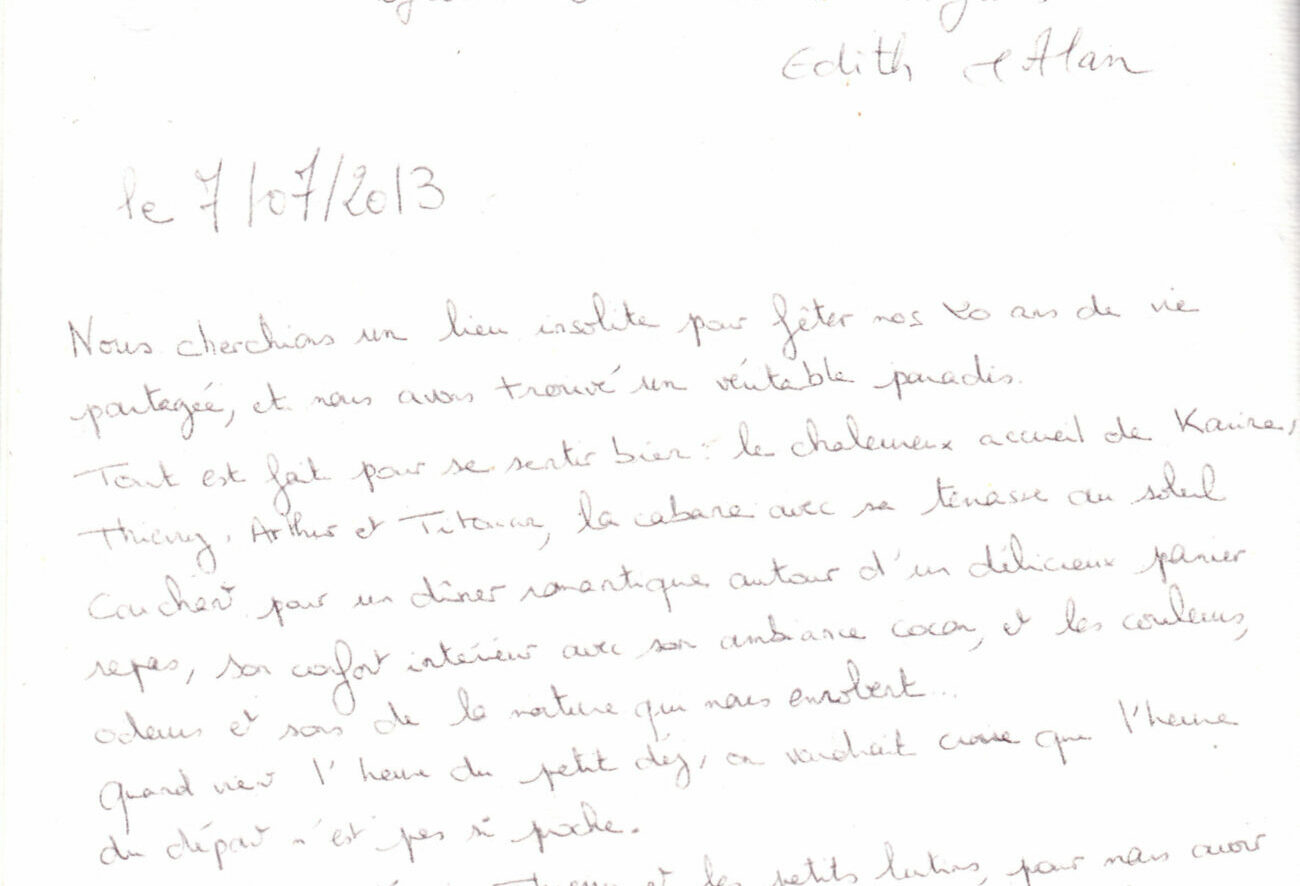 Edith et Alain
le 7/07/2013
Nous cherchions un lieu insolite pour fêter nos 20 ans de vie
partagée, et nous avons trouvé un véritable paradis.
Tout est fait pour se sentir bien : le chaleureux accueil de Karine,
Thierry, Arthur et la cabane avec sa terrasse au soleil
couchant pour un dîner romantique autour d'un délicieux panier
repas, son confort intérieur avec son ambiance cocon, et les couleurs,
odeurs et sons de la nature qui nous enrobent...
Quand vient l'heure du petit déj, on voudrait croire que l'heure
du départ n'est pas si proche.
et les petits lutins, pour nous avoir